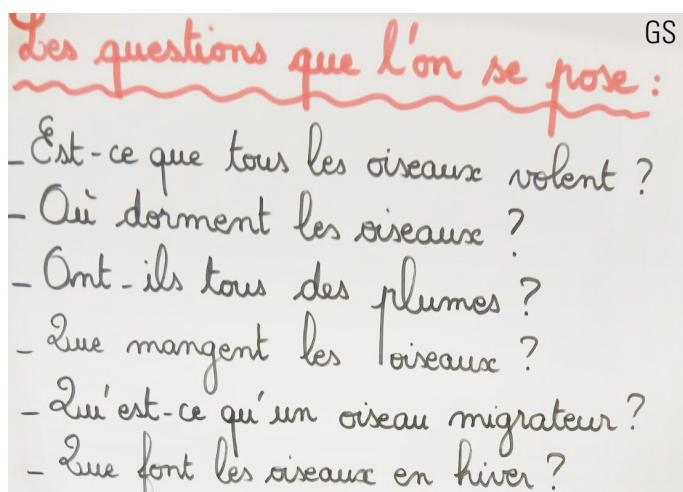 GS
Les questions que l'on se pose :
- Est-ce que tous les oiseaux volent ?
- Où dorment les oiseaux ?
- Ont-ils tous des plumes ?
- Que mangent les oiseaux ?
- Qu'est-ce qu'un oiseau migrateur ?
- Que font les oiseaux en hiver ?